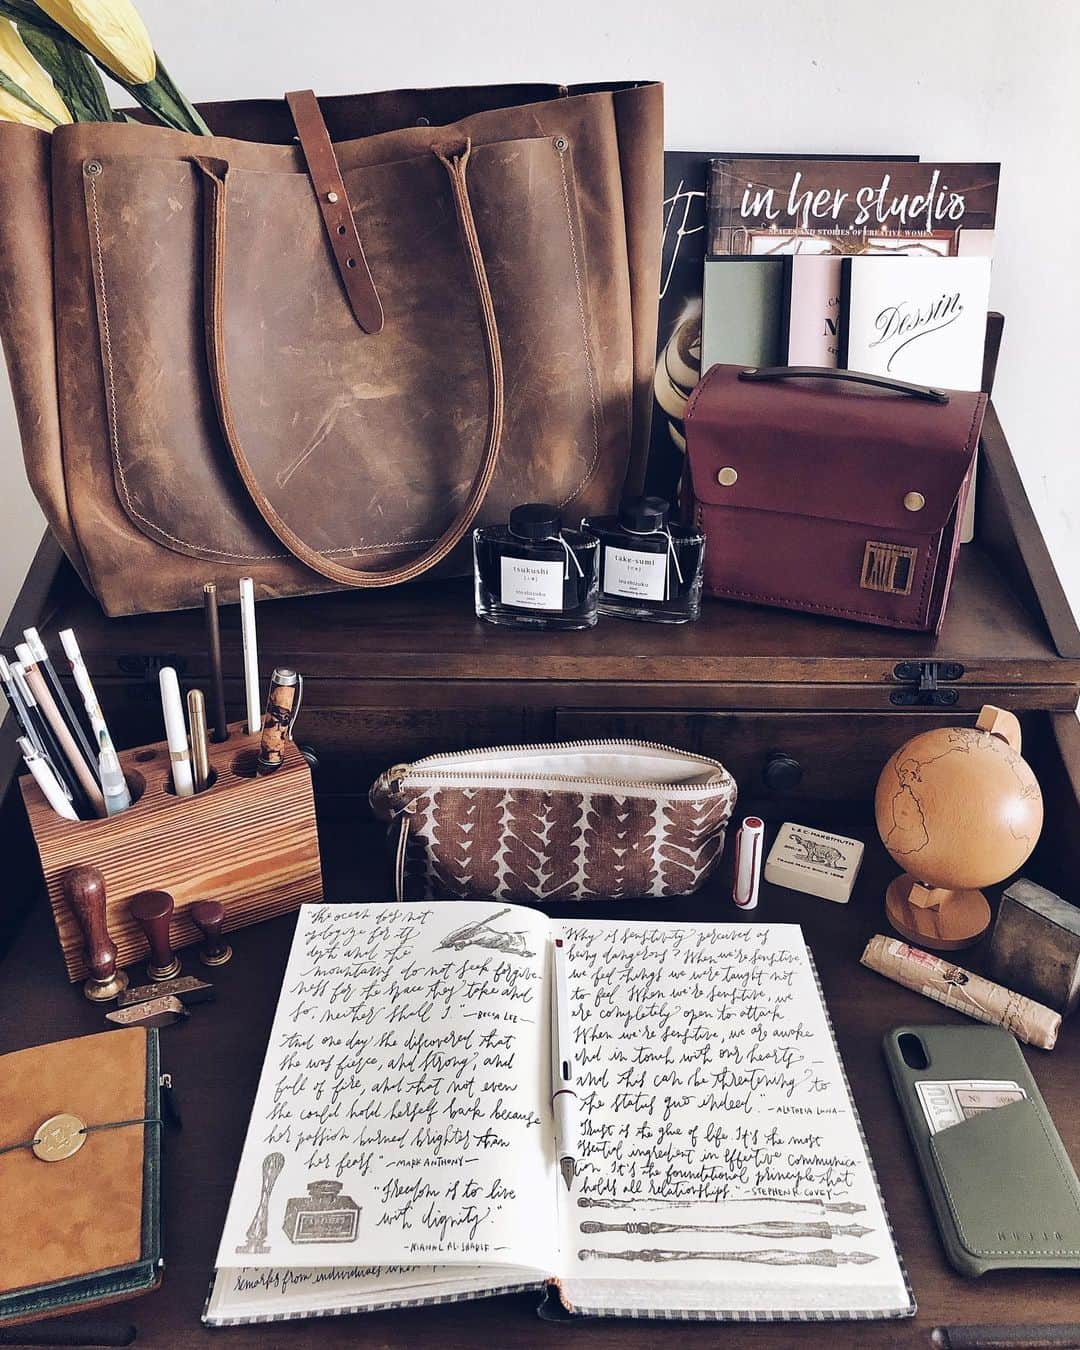 in her studio
SPACES AND STORIES OF CREATIVE WOMEN
Dessin.
tsukushi
iroshizuku
take-sumi
iroshizuku
L & C HARDTMUTH
"The ocean does not
apologize for its
depth and the
mountains do not seek forgive-
ness for the space they take and
so, neither shall I. —BECCA LEE—
"And one day she discovered that
she was fierce, and strong, and
full of fire, and that not even
she could hold herself back because
her passion burned brighter than
her fears." —MARK ANTHONY—
"Freedom is to live
with dignity."
—MANAL AL-SHARIF—
remarks from individuals
"Why is sensitivity perceived as
being dangerous? When we're sensitive,
we feel things we were taught not
to feel. When we're sensitive, we
are completely open to attack
When we're sensitive, we are awake
and in touch with our hearts —
and this can be threatening to
the status quo indeed." —ALETHEIA LUNA—
"Trust is the glue of life. It's the most
essential ingredient in effective communica-
tion. It's the foundational principle that
holds all relationships." —STEPHEN R. COVEY—
MUJJO